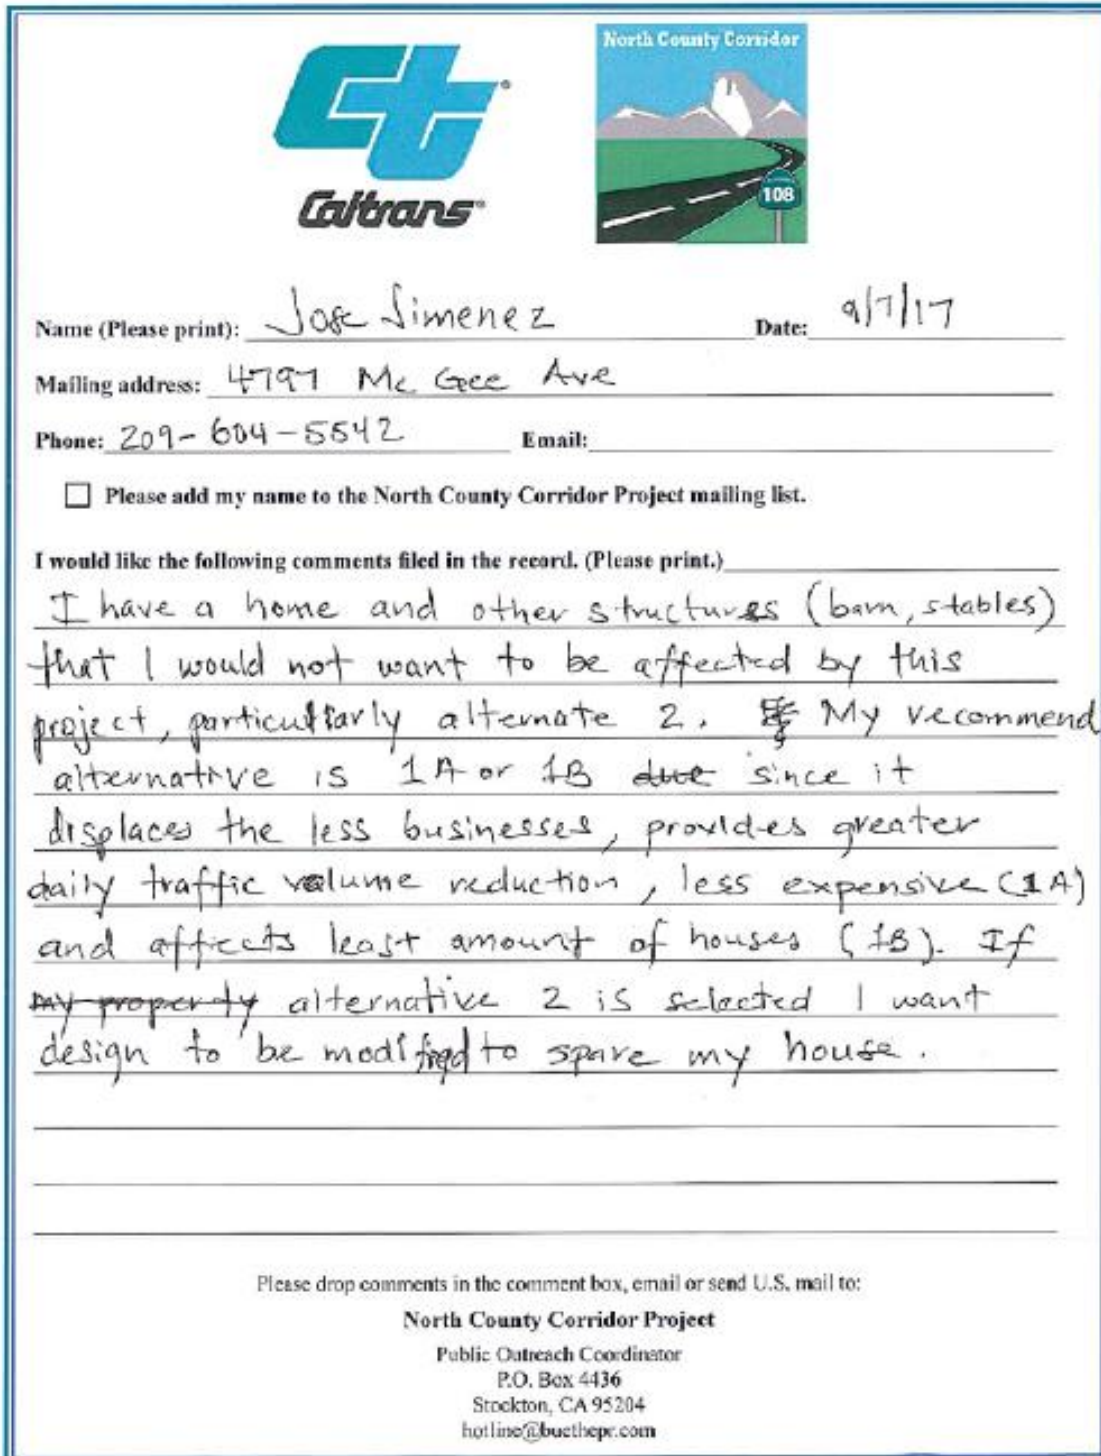 North County Corridor
Ct®
Caltrans®
108
Name (Please print): Jose Jimenez Date: 9/7/17
Mailing address: 4797 Mc Gee Ave
Phone: 209-604-5542 Email:
Please add my name to the North County Corridor Project mailing list.
I would like the following comments filed in the record. (Please print.)
I have a home and other structures (barn, stables)
that I would not want to be affected by this
project, particularly alternate 2. My recommend
alternative is 1A or 1B due since it
displaces the less businesses, provides greater
daily traffic volume reduction, less expensive (1A)
and affects least amount of houses (1B). If
my property alternative 2 is selected I want
design to be modified to spare my house.
Please drop comments in the comment box, email or send U.S. mail to:
North County Corridor Project
Public Outreach Coordinator
P.O. Box 4436
Stockton, CA 95204
hotline@buethepr.com